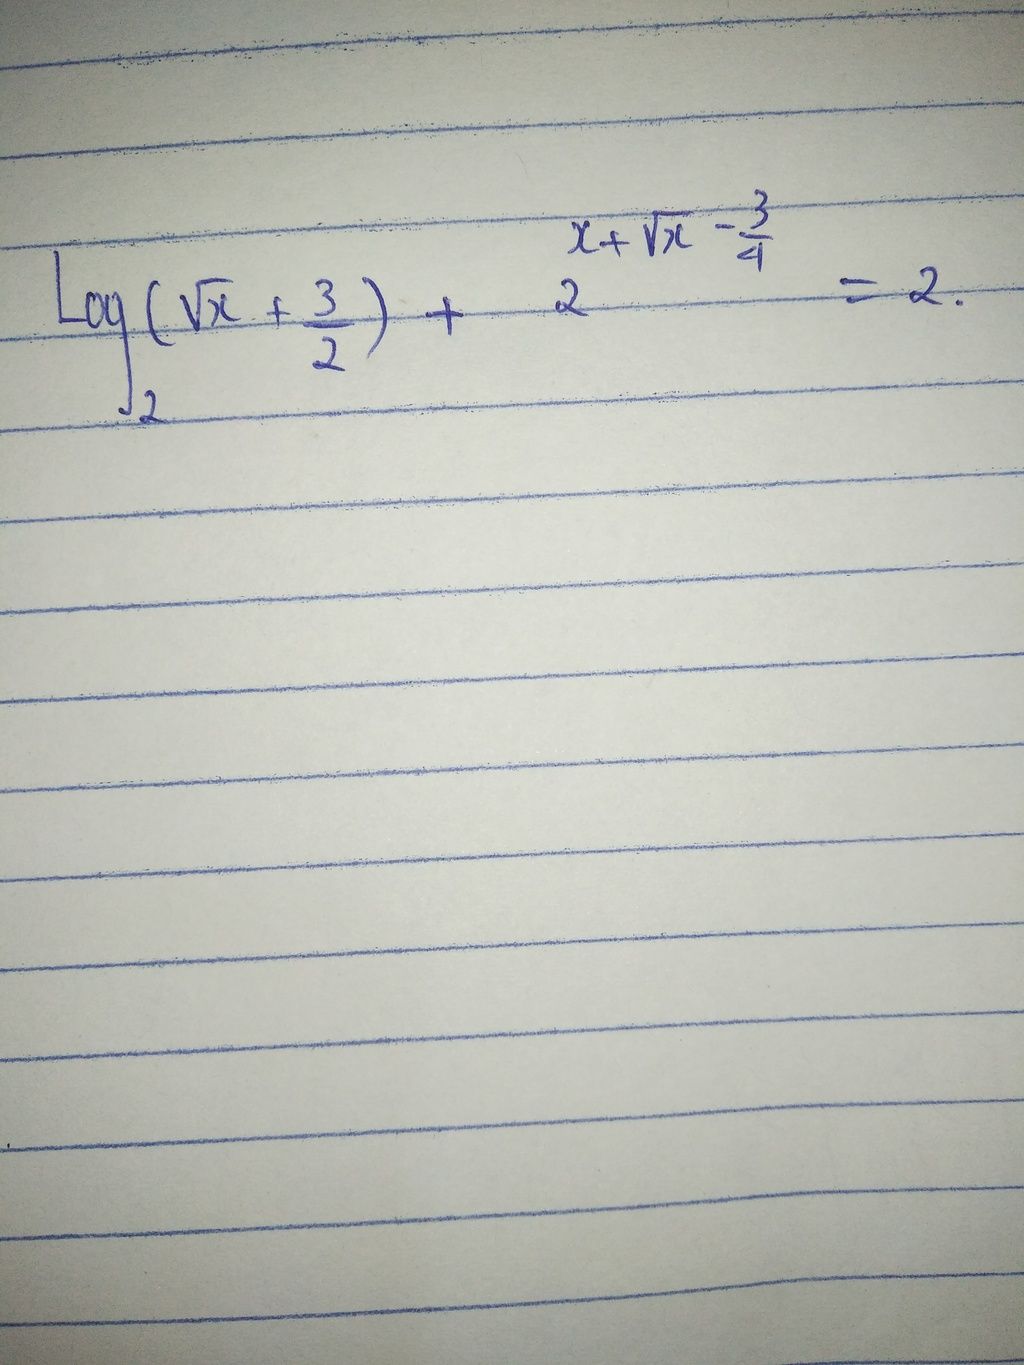 Log₂(√x + 3/2) + 2^(x+√x - 3/4) = 2.